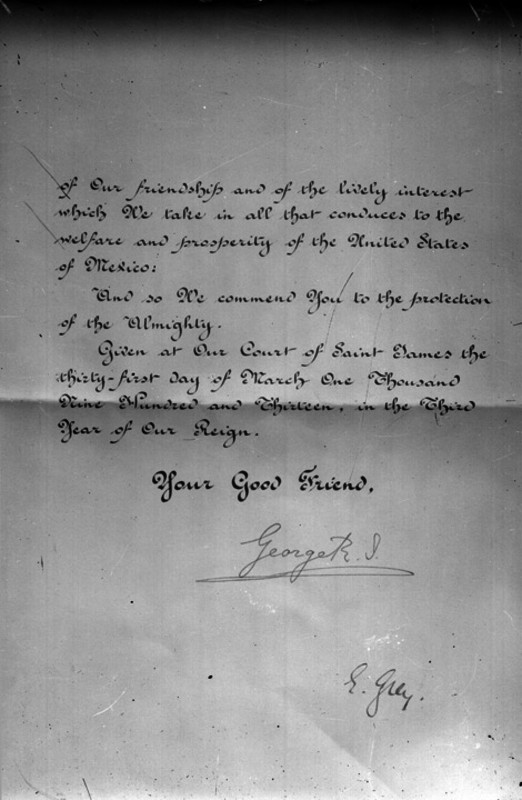 of Our friendship and of the lively interest
which We take in all that conduces to the
welfare and prosperity of the United States
of Mexico:
And so We commend You to the protection
of the Almighty.
Given at Our Court of Saint James the
thirty-first day of March One Thousand
Nine Hundred and Thirteen, in the Third
Year of Our Reign.
Your Good Friend,
George R. I.
E. Grey.